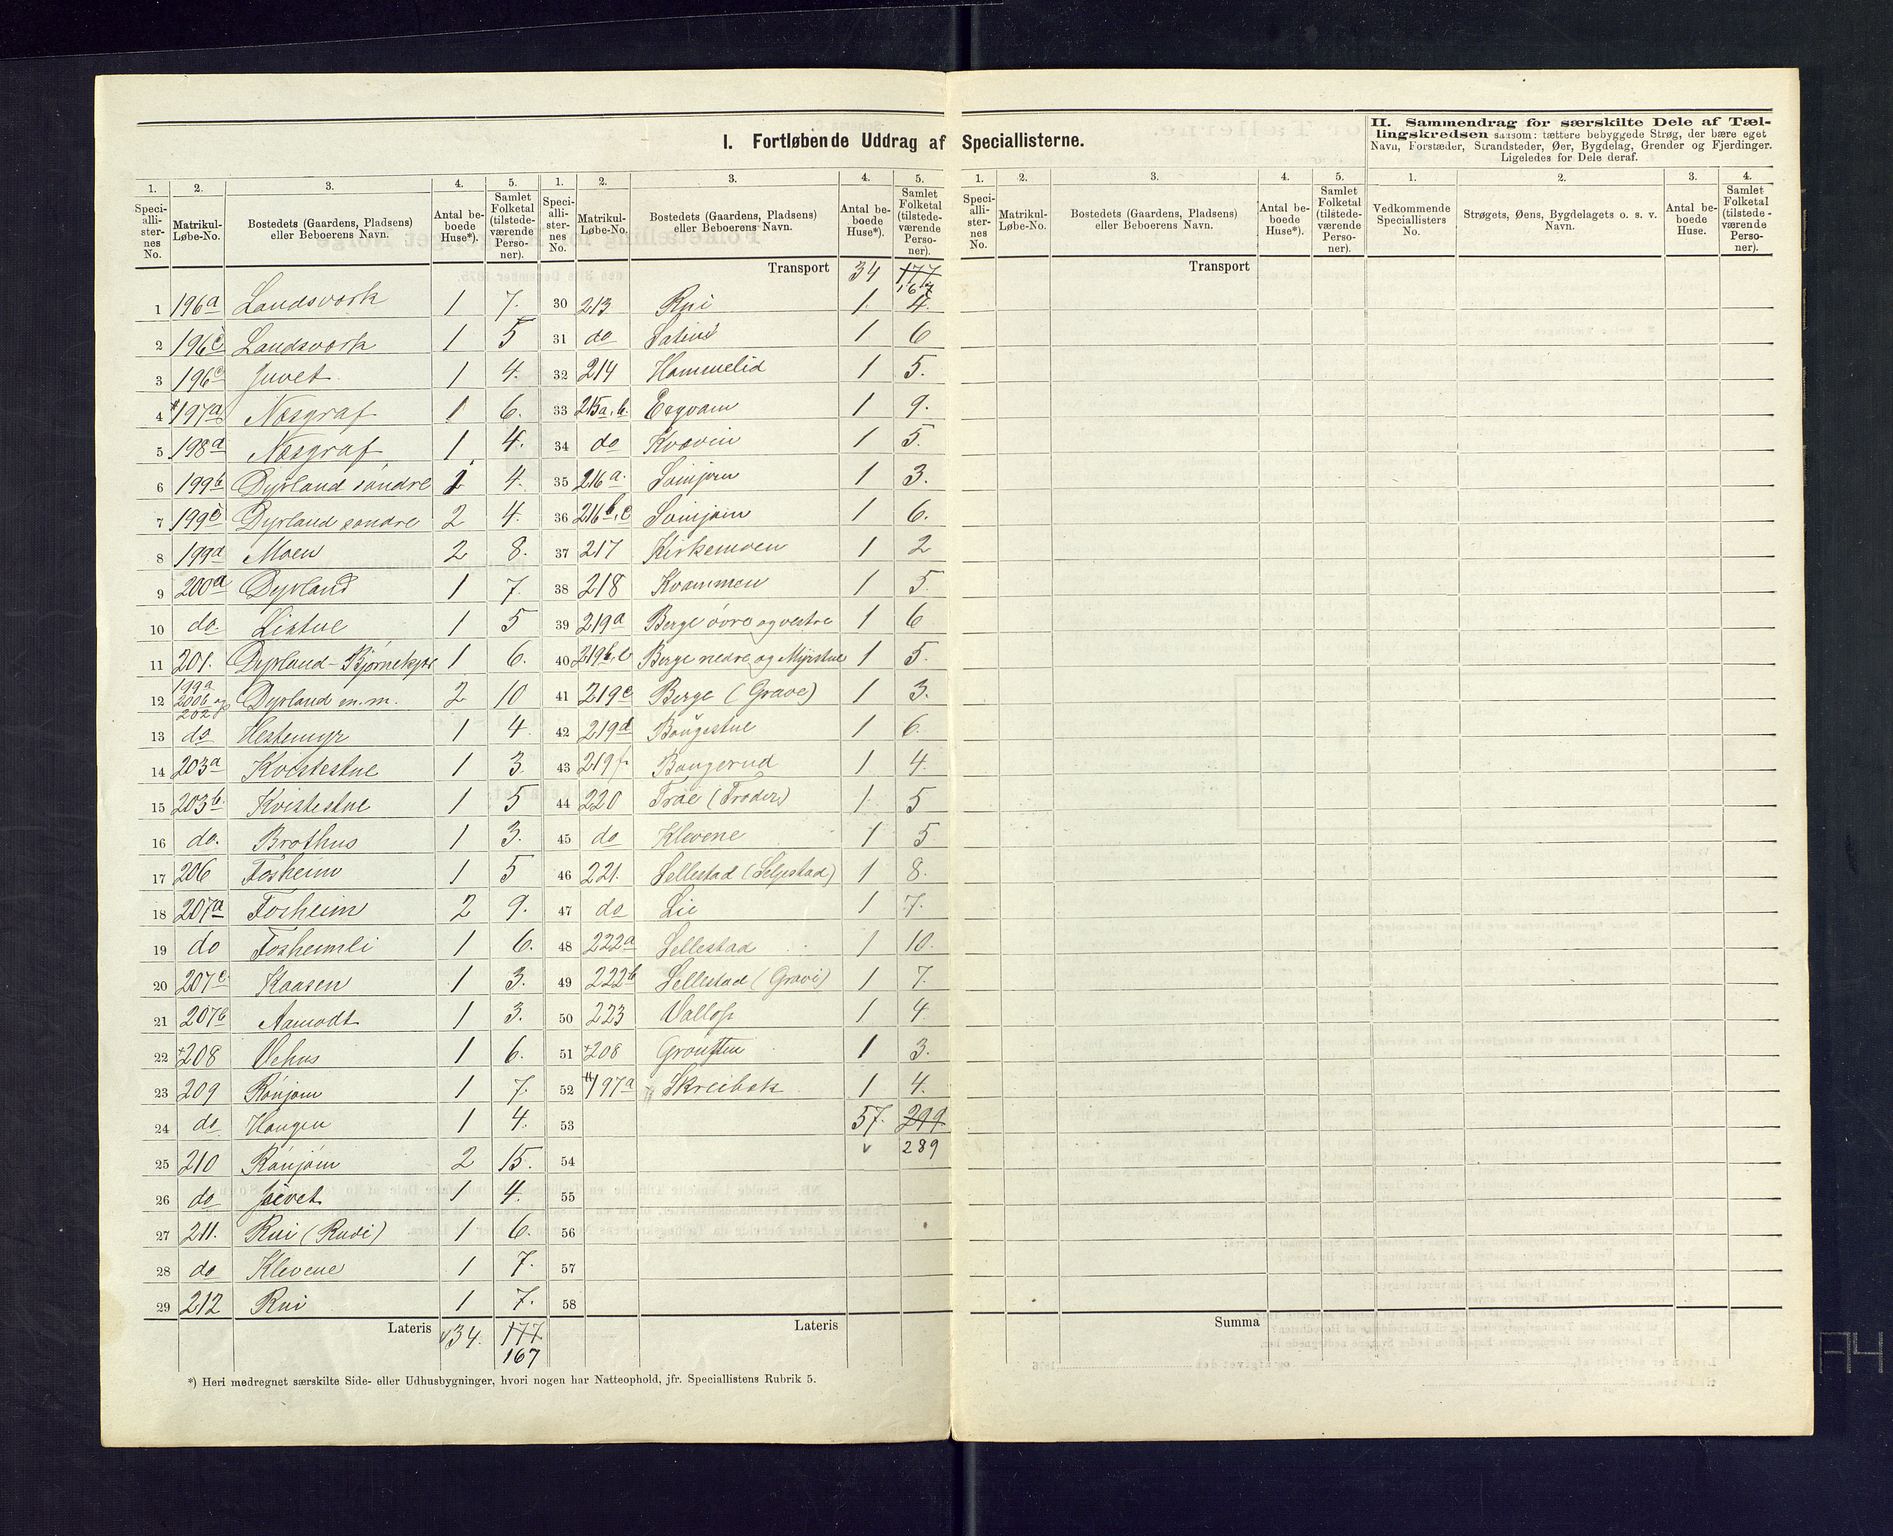 I. Fortløbende Uddrag af Speciallisterne.
II. Sammendrag for særskilte Dele af Tæl-
lingskredsen saasom: tættere bebyggede Strøg, der bære eget
Navn, Forstæder, Strandsteder, Øer, Bygdelag, Grender og Fjerdinger.
Ligeledes for Dele deraf.
1. 2. 3. 4. 5.
Speciallisternes No. Matrikul-Løbe-No. Bostedets (Gaardens, Pladsens) eller Beboerens Navn. Antal beboede Huse*). Samlet Folketal (tilstedeværende Personer).
1 196a Landsværk 1 7.
2 196c Landsværk 1 5
3 196c Juvet 1 4.
4 197a Næsgraf 1 6.
5 198a Næsgraf 1 4.
6 199b Dyrland søndre 1 4.
7 199c Dyrland søndre 2 4.
8 199a Moen 2 8.
9 200a Dyrland 1 7.
10 do. Listue 1 5
11 201. Dyrland - 1 6.
12 199a 200b og 202 Dyrland m.m. 2 10
13 do Hestemyr 1 4.
14 203a Kvistestue 1 3.
15 203b. Kvistestue 1 5
16 do. Brothus 1 3.
17 206 Fosheim 1 5
18 207a Fosheim 2 9.
19 do Fosheimli 1 6.
20 207c. Kaasen 1 3.
21 207b Aamodt 1 3.
22 +208 Vehus 1 6.
23 209 Rønjom 1 7.
24 do Haugen 1 4.
25 210 Rønjom 2 15.
26 do Juvet 1 4.
27 211. Rui (Rudi) 1 6.
28 do Klevene 1 7.
29 212 Rui 1 7.
Lateris 34. 177
167
1. 2. 3. 4. 5.
Speciallisternes No. Matrikul-Løbe-No. Bostedets (Gaardens, Pladsens) eller Beboerens Navn. Antal beboede Huse*). Samlet Folketal (tilstedeværende Personer).
Transport 34 177
167
30 213 Rui 1 4.
31 do 1 6
32 214 Hommelid 1 5.
33 215a, b. 1 9.
34 do 1 5.
35 216a. 1 3.
36 216b, c 1 6.
37 217 Kirkemoen 1 2
38 218 Kvammen 1 5.
39 219a Berge øvre og vestre 1 6
40 219b, e Berge nedre og Myrstue 1 5.
41 219c Berge (Grave) 1 3.
42 219d Baugestue 1 6.
43 219f. Baugerud 1 4.
44 220 Træ (Trøder) 1 5
45 do Klevene 1 5
46 221. Sellestad (Seljestad) 1 8.
47 do Lie 1 7.
48 222a Sellestad 1 10.
49 222b Sellestad (Gravi) 1 7.
50 223 1 4.
51 +208 1 3.
52 197a Skreibæk 1 4.
53 57. 299
54 v 289
55
56
57
58
Lateris
1. 2. 3. 4. 5.
Speciallisternes No. Matrikul-Løbe-No. Bostedets (Gaardens, Pladsens) eller Beboerens Navn. Antal beboede Huse*). Samlet Folketal (tilstedeværende Personer).
Transport
Summa
1. 2. 3. 4.
Vedkommende Speciallisters No. Strøgets, Øens, Bygdelagets o. s. v. Navn. Antal beboede Huse. Samlet Folketal (tilstedeværende Personer).
*) Heri medregnet særskilte Side- eller Udhusbygninger, hvori nogen har Natteophold, jfr. Speciallistens Rubrik 5.